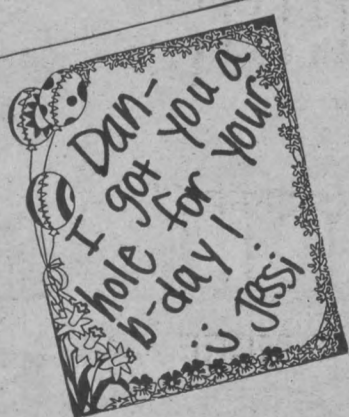 Dan-
I got you a
hole for your
b-day!
:) Jessi